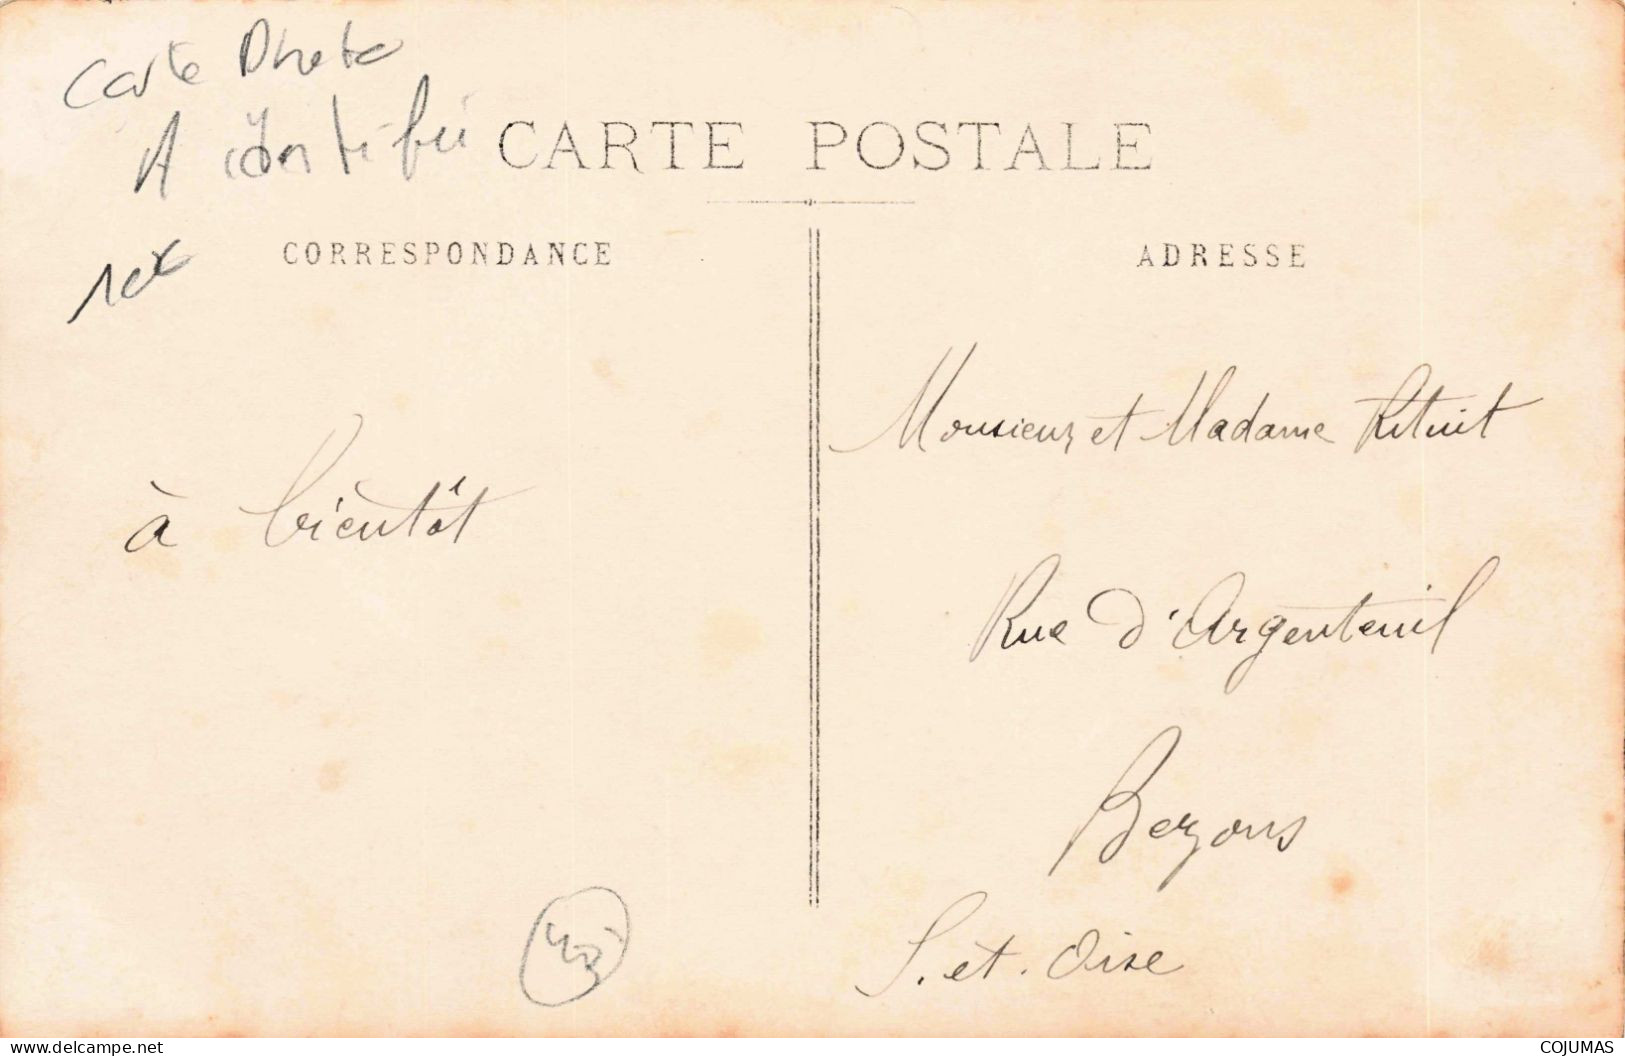 Carte Photo
A identifier
CARTE POSTALE
CORRESPONDANCE
ADRESSE
à bientôt
Monsieur et Madame
Rue d'Argenteuil
Bezons
S. et. Oise
www.delcampe.net
COJUMAS